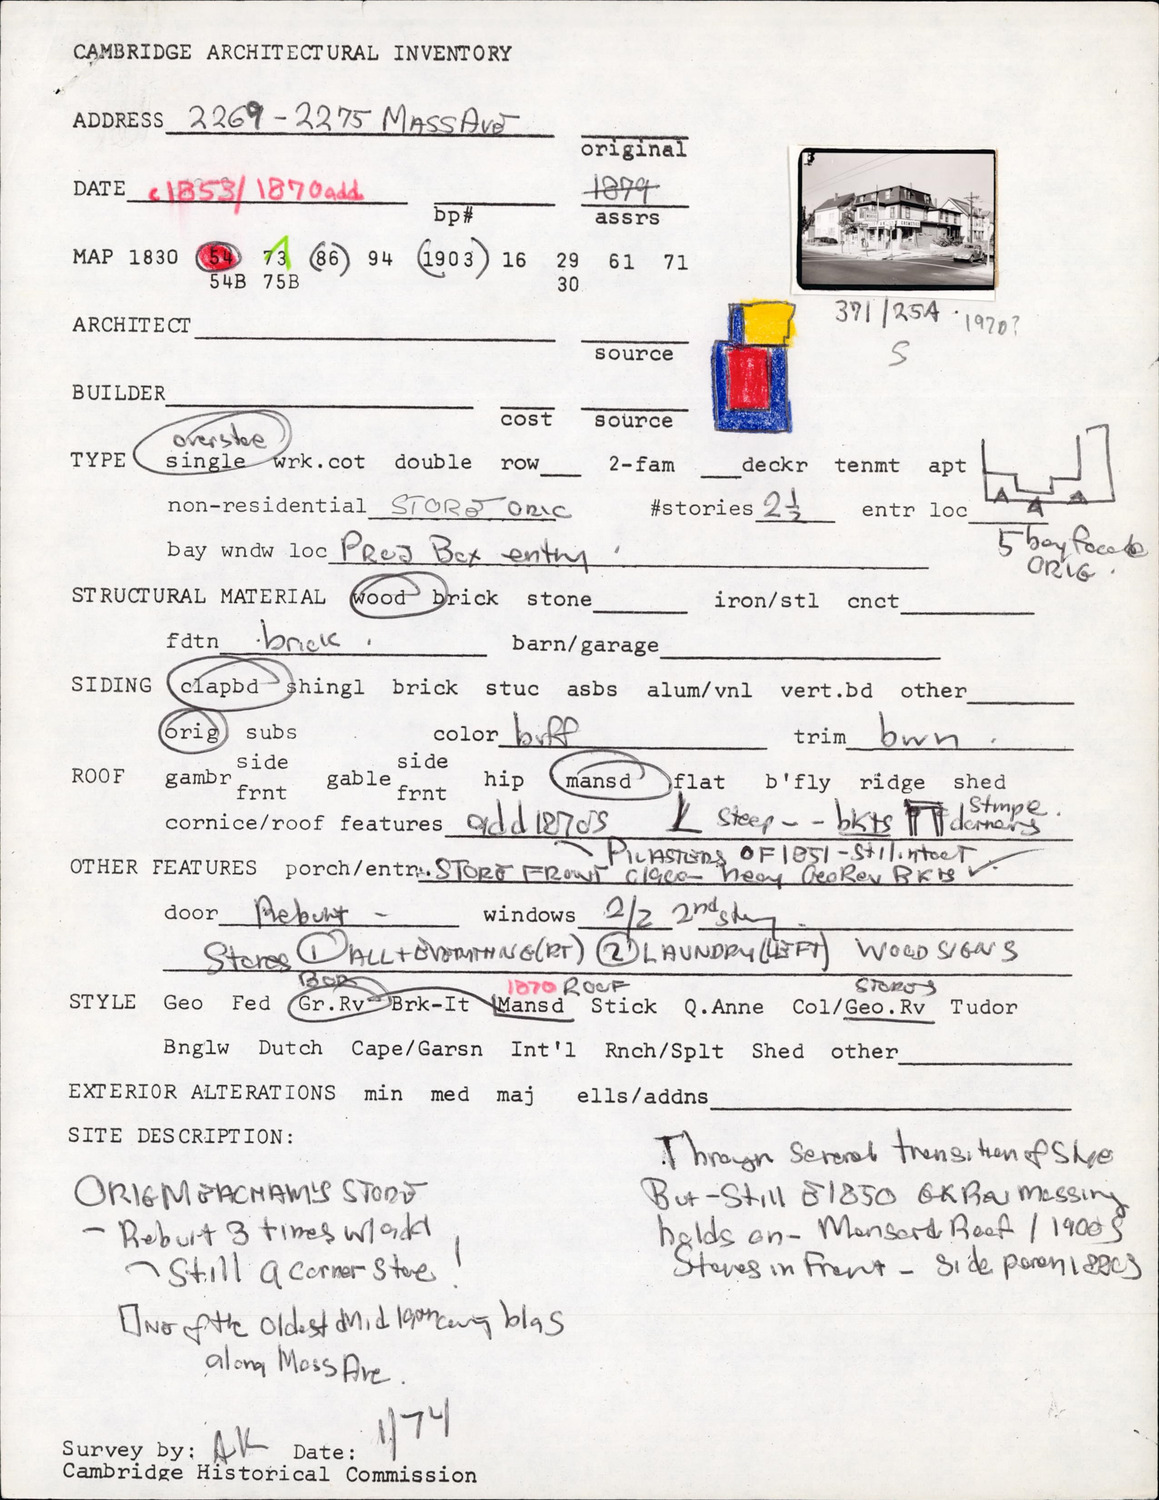 CAMBRIDGE ARCHITECTURAL INVENTORY
ADDRESS 2269-2275 MASS AVE
original
DATE c1853/1870 add 1879
bp# assrs
MAP 1830 54 73 (86) 94 (1903) 16 29 61 71
54B 75B 30
371/25A 1970?
S
ARCHITECT
source
BUILDER
cost source
overstee
TYPE single wrk.cot double row 2-fam deckr tenmt apt
non-residential STORE ORIG #stories 2½ entr loc
5 bay facade
ORIG.
bay wndw loc Proj Box entry
STRUCTURAL MATERIAL wood brick stone iron/stl cnct
fdtn brick. barn/garage
SIDING clapbd shingl brick stuc asbs alum/vnl vert.bd other
orig subs color buff trim bwn.
side side
ROOF gambr gable hip mansd flat b'fly ridge shed
frnt frnt
cornice/roof features add 1870s Steep - - bkts dormers
PILASTERS OF 1851 - Still intact
OTHER FEATURES porch/entr. STORE FRONT Geo Rev BKTS
door Rebuilt - windows 2/2 2nd story
Stores ① ALL + EVERYTHING (RT) ② LAUNDRY (LEFT) WOOD SIGNS
1870 ROOF STORES
STYLE Geo Fed Gr.Rv Brk-It Mansd Stick Q.Anne Col/Geo.Rv Tudor
Bnglw Dutch Cape/Garsn Int'l Rnch/Splt Shed other
EXTERIOR ALTERATIONS min med maj ells/addns
SITE DESCRIPTION:
ORIG MEACHAM'S STORE
- Rebuilt 3 times w/add
Still a corner store!
One of the oldest mid 19th century bldgs
along Mass Ave.
Through several transition of
But - Still 1850 GK Rev massing
holds on - Mansard Roof / 1900s
Stores in Front - Side 1880s
Survey by: AK Date: 1/74
Cambridge Historical Commission